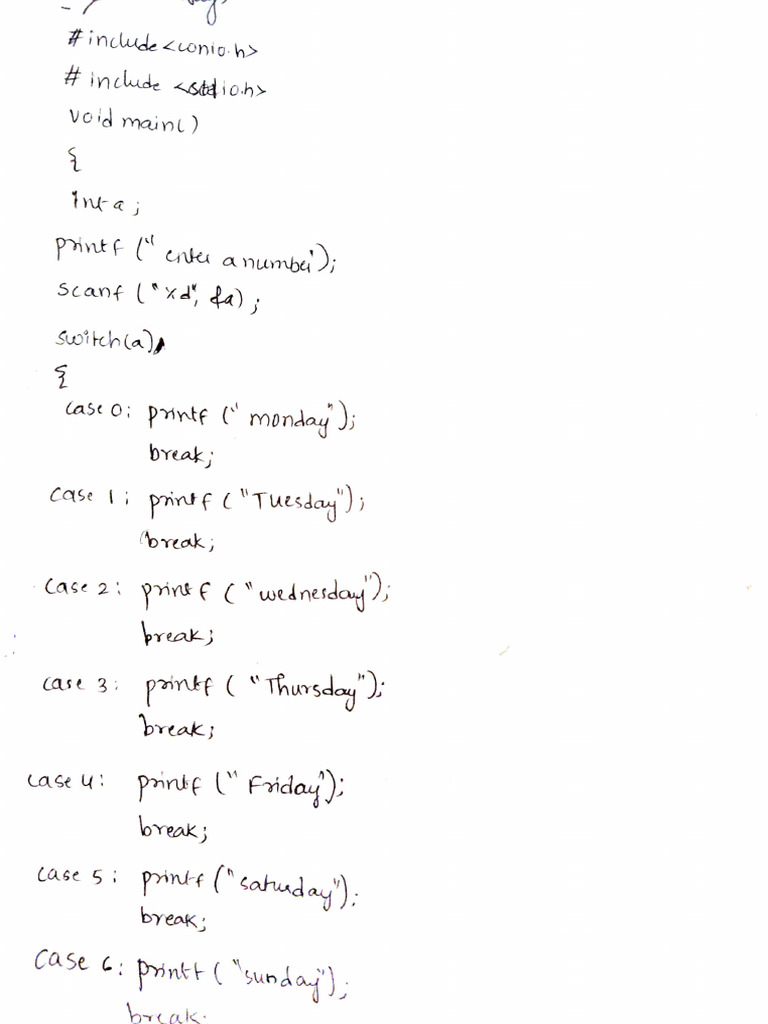 #include<conio.h>
# include <stdio.h>
void main()
{
int a;
printf (" enter a number");
scanf ("%d", &a);
switch(a)
{
case 0: printf (" monday");
break;
case 1: printf ("Tuesday");
break;
case 2: printf ("wednesday");
break;
case 3: printf ("Thursday");
break;
case 4: printf (" Friday");
break;
case 5: printf ("saturday");
break;
case 6: printf ("sunday");
break;